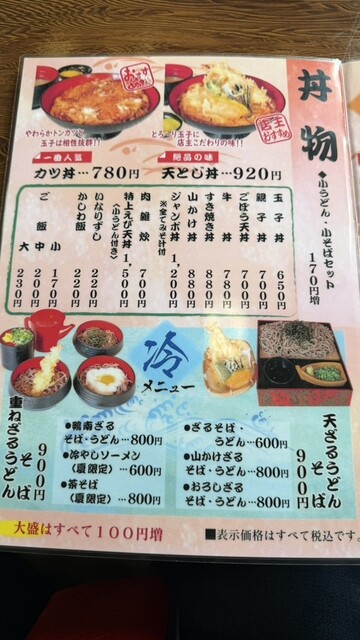 丼物
◆小うどん・小そばセット 170円増
おすすめ
店主おすすめ
やわらかトンカツと
玉子は相性抜群!!
とろ〜り玉子に
店主こだわりの味!!
一番人気
絶品の味
カツ丼…780円
天とじ丼…920円
玉子丼 650円
親子丼 700円
ごぼう天丼 700円
牛丼
すき焼き丼 880円
山かけ丼 880円
ジャンボ丼 1,200円
※全てみそ汁付
肉雑炊 700円
特上えび天丼 1,500円
〈小うどん付き〉
いなりずし 220円
かしわ飯 220円
ご飯 小 170円
中 200円
大 230円
冷メニュー
天ざるうどん
そば 900円
●ざるそば・
うどん…600円
●山かけざる
そば・うどん…800円
●おろしざる
そば・うどん…800円
●鴨南ざる
そば・うどん…800円
●冷やしソーメン
(夏限定)…600円
●茶そば
(夏限定)…800円
重ねざるうどん
そば 900円
大盛はすべて100円増
■表示価格はすべて税込です。